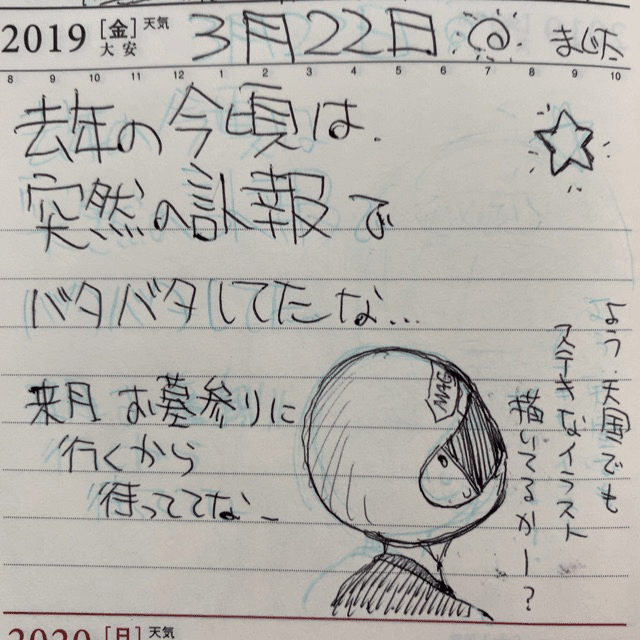 2019 [金] 天気 3月22日
大安
8 9 10 11 12 1 2 3 4 5 6 7 8 9 10
去年の今頃は、
突然の訃報で
バタバタしてたな…
来月お墓参りに
行くから
待っててな_
よう、天国でも
ステキなイラスト
描いてるかー?
MAG
2020 [月] 天気